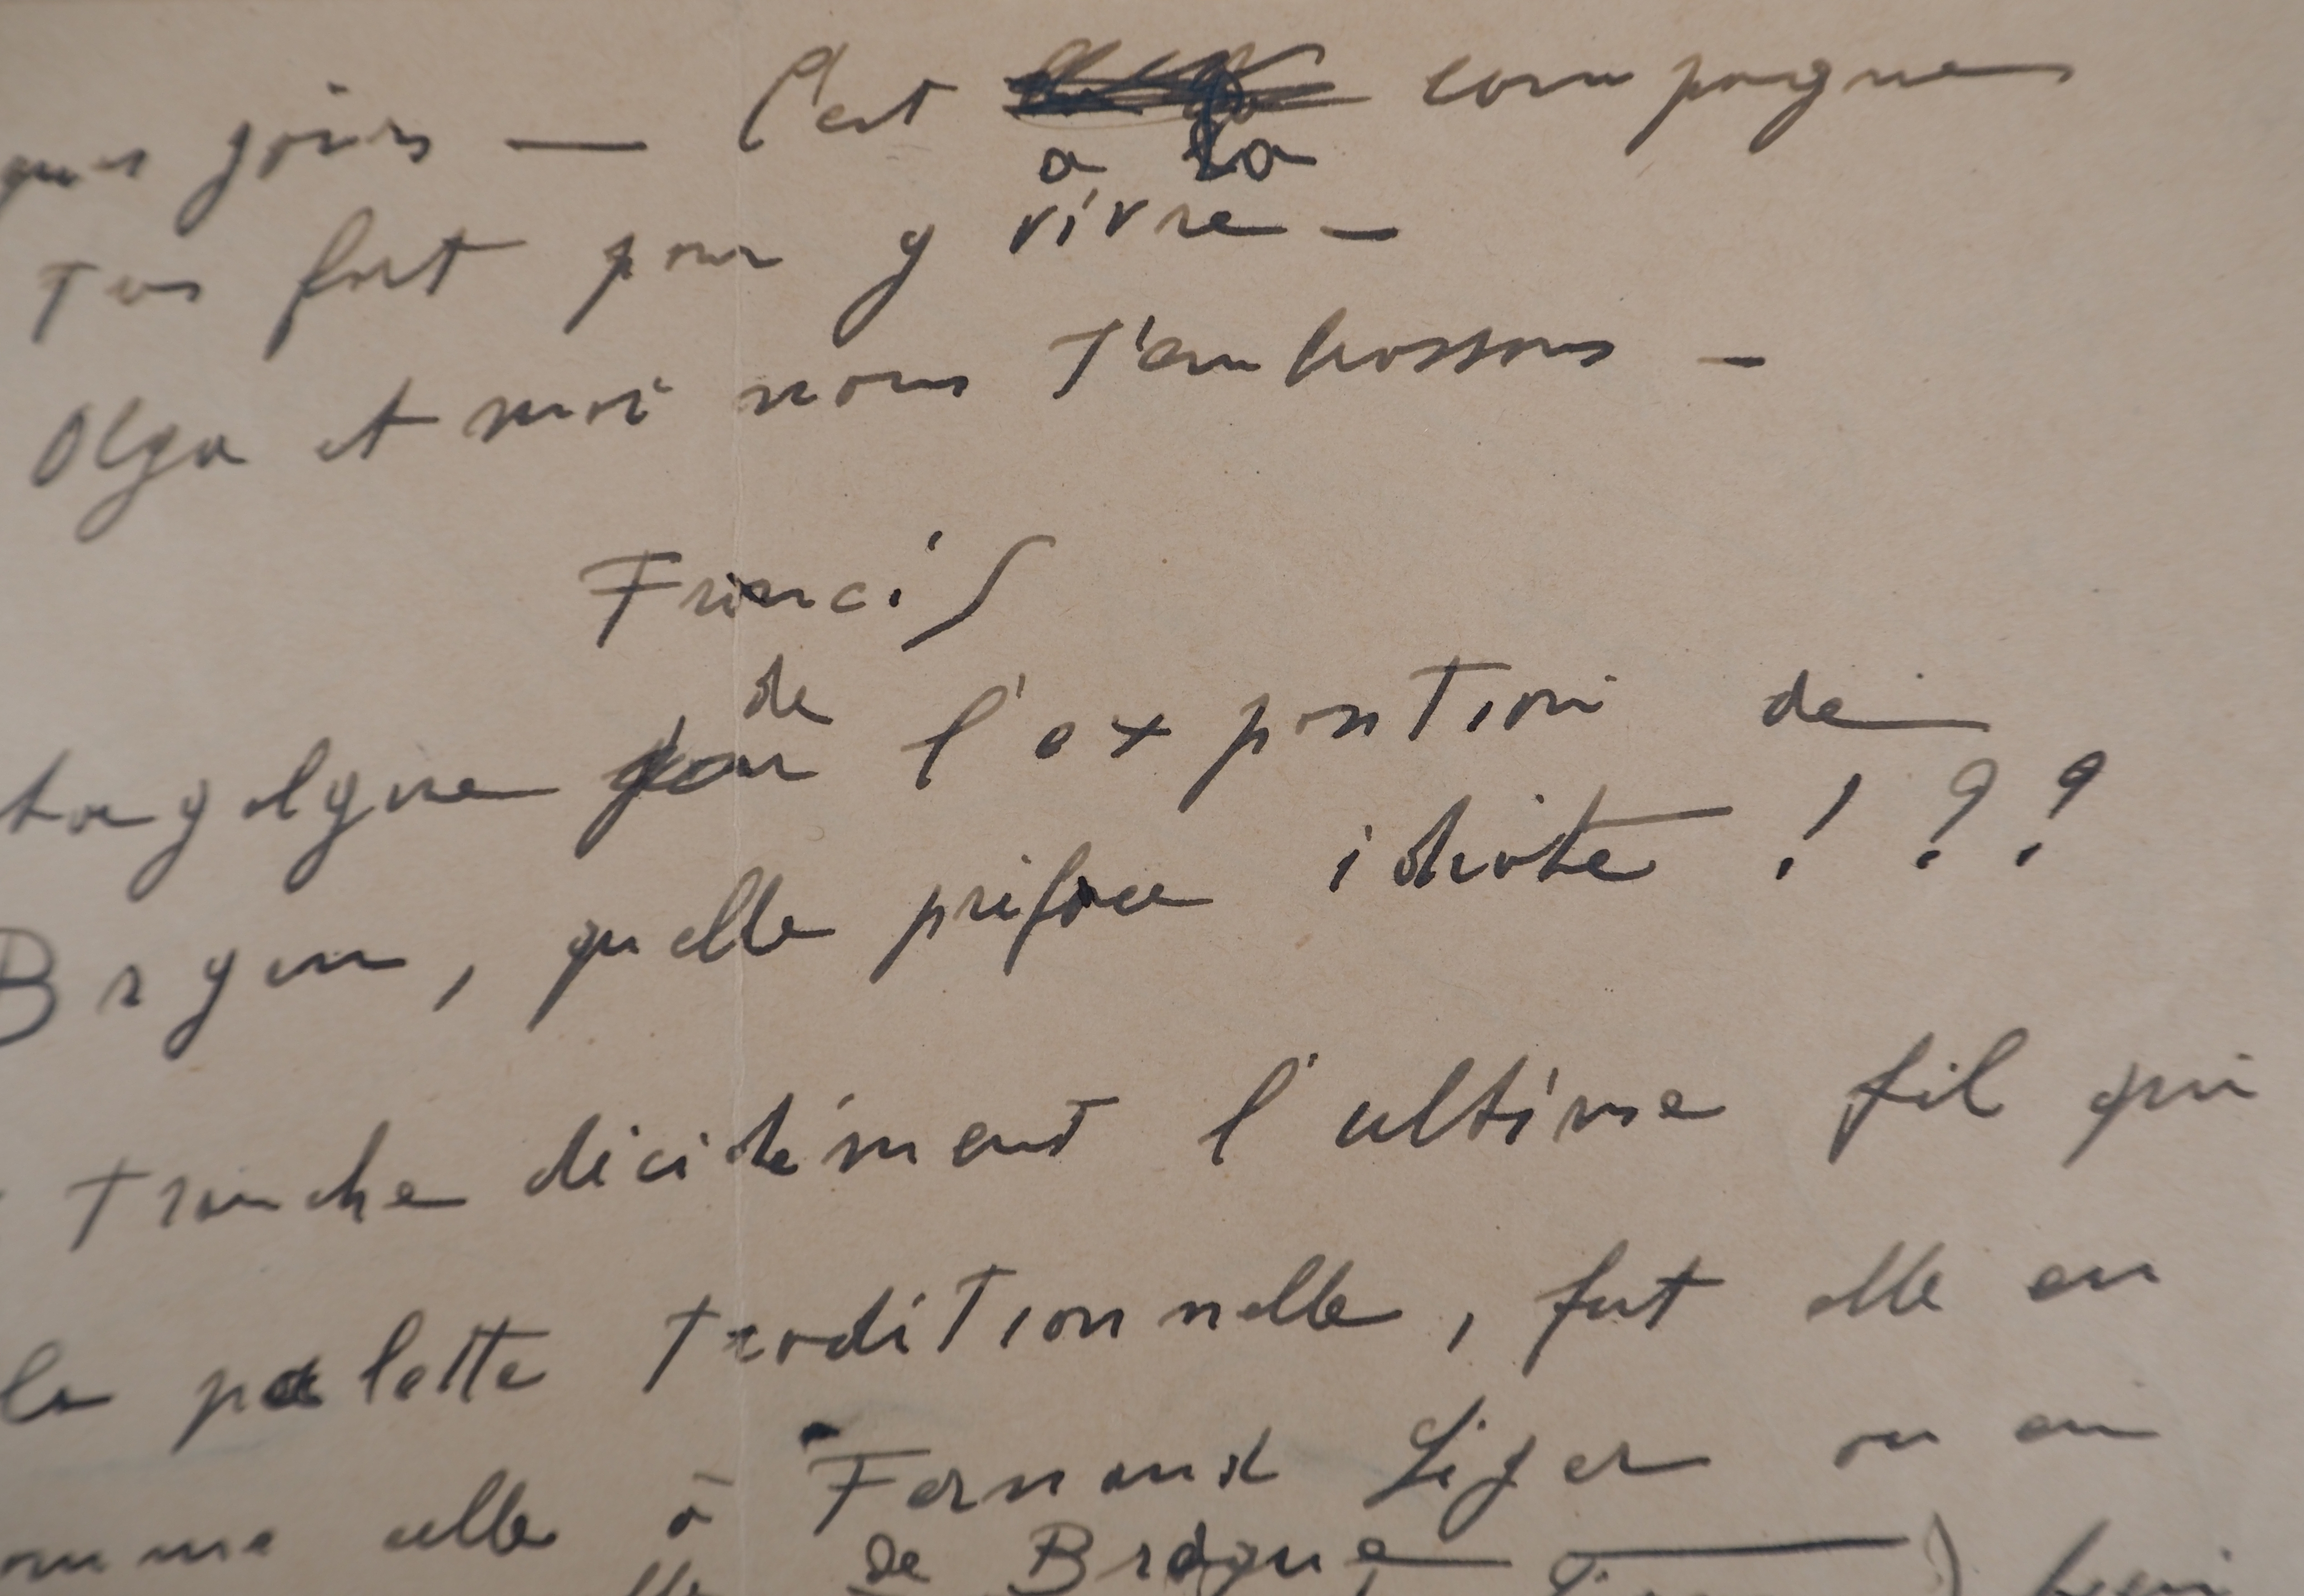 ques jours — C'est compagne
à la
Tus fort pour y vivre —
Olga et moi nous t'embrassons —
Francis
de
l'exposition de
Bryen, quelle préface idiote !??
tranche décidément l'ultime fil qui
la palette traditionnelle, fut elle en
omme celle à Fernand Léger ou en
de Braque